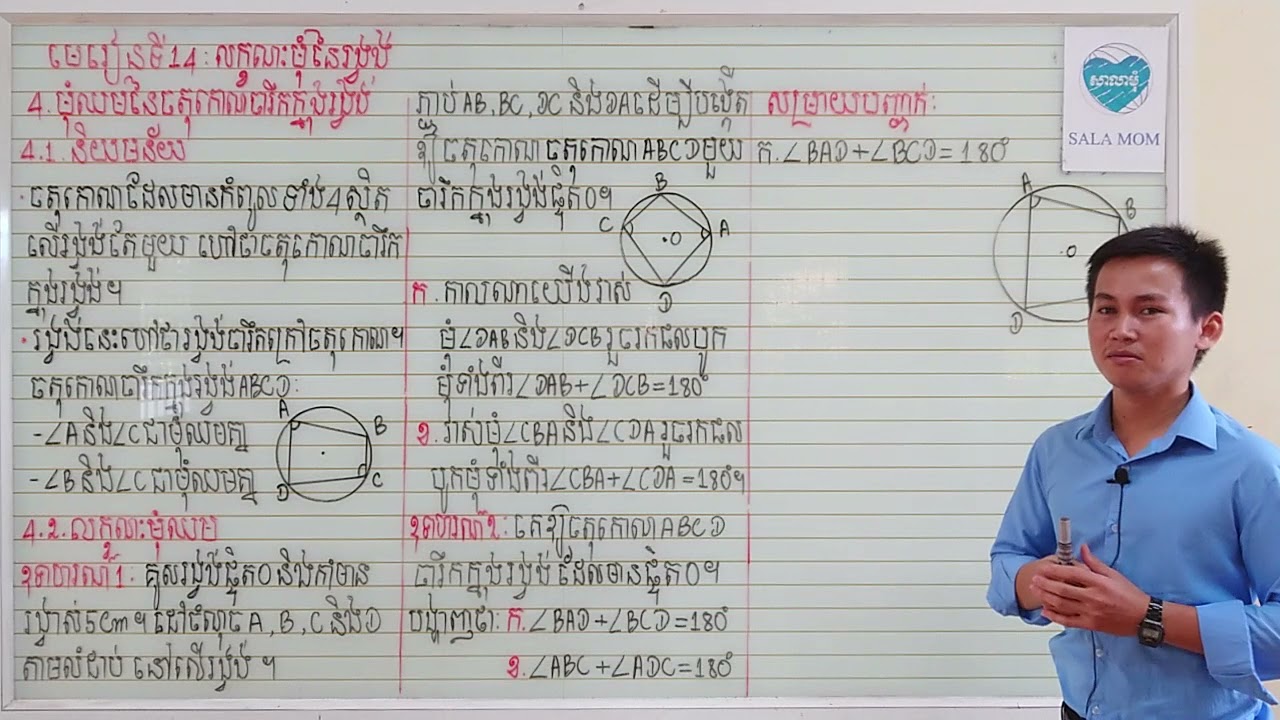 មេរៀនទី14: លក្ខណៈមុំនៃរង្វង់
4. មុំឈមនៃចតុកោណចារឹកក្នុងរង្វង់
4.1. និយមន័យ
· ចតុកោណដែលមានកំពូលទាំង4ស្ថិត
លើរង្វង់តែមួយ ហៅថាចតុកោណចារឹក
ក្នុងរង្វង់។
· រង្វង់នេះហៅថារង្វង់ចារឹកក្រៅចតុកោណ។
ចតុកោណចារឹកក្នុងរង្វង់ABCD:
-∠Aនិង∠Cជាមុំឈមគ្នា
-∠Bនិង∠Cជាមុំឈមគ្នា
A
B
C
D
4.2. លក្ខណៈមុំឈម
ឧទាហរណ៍1: គូសរង្វង់ផ្ចិតO និងកាំមាន
រង្វាស់5cm។ ដៅចំណុច A, B, C និងD
តាមលំដាប់ នៅលើរង្វង់ ។
ភ្ជាប់ AB, BC, DC និងDAដើម្បីបង្កើត
ឱ្យចតុកោណចតុកោណABCDមួយ
ចារឹកក្នុងរង្វង់ផ្ចិតO។
B
C
A
O
D
ក. កាលណាយើងវាស់
មុំ∠DABនិង∠DCBរួចរកផលបូក
មុំទាំងពីរ∠DAB+∠DCB=180°
ខ. វាស់មុំ∠CBAនិង∠CDAរួចរកផល
បូកមុំទាំងពីរ∠CBA+∠CDA=180°។
ឧទាហរណ៍2: គេឱ្យចតុកោណABCD
ចារឹកក្នុងរង្វង់ដែលមានផ្ចិតO។
បង្ហាញថា: ក.∠BAD+∠BCD=180°
ខ.∠ABC+∠ADC=180°
សម្រាយបញ្ជាក់:
ក.∠BAD+∠BCD=180°
A
B
O
D
សាលាមុំ
SALA MOM